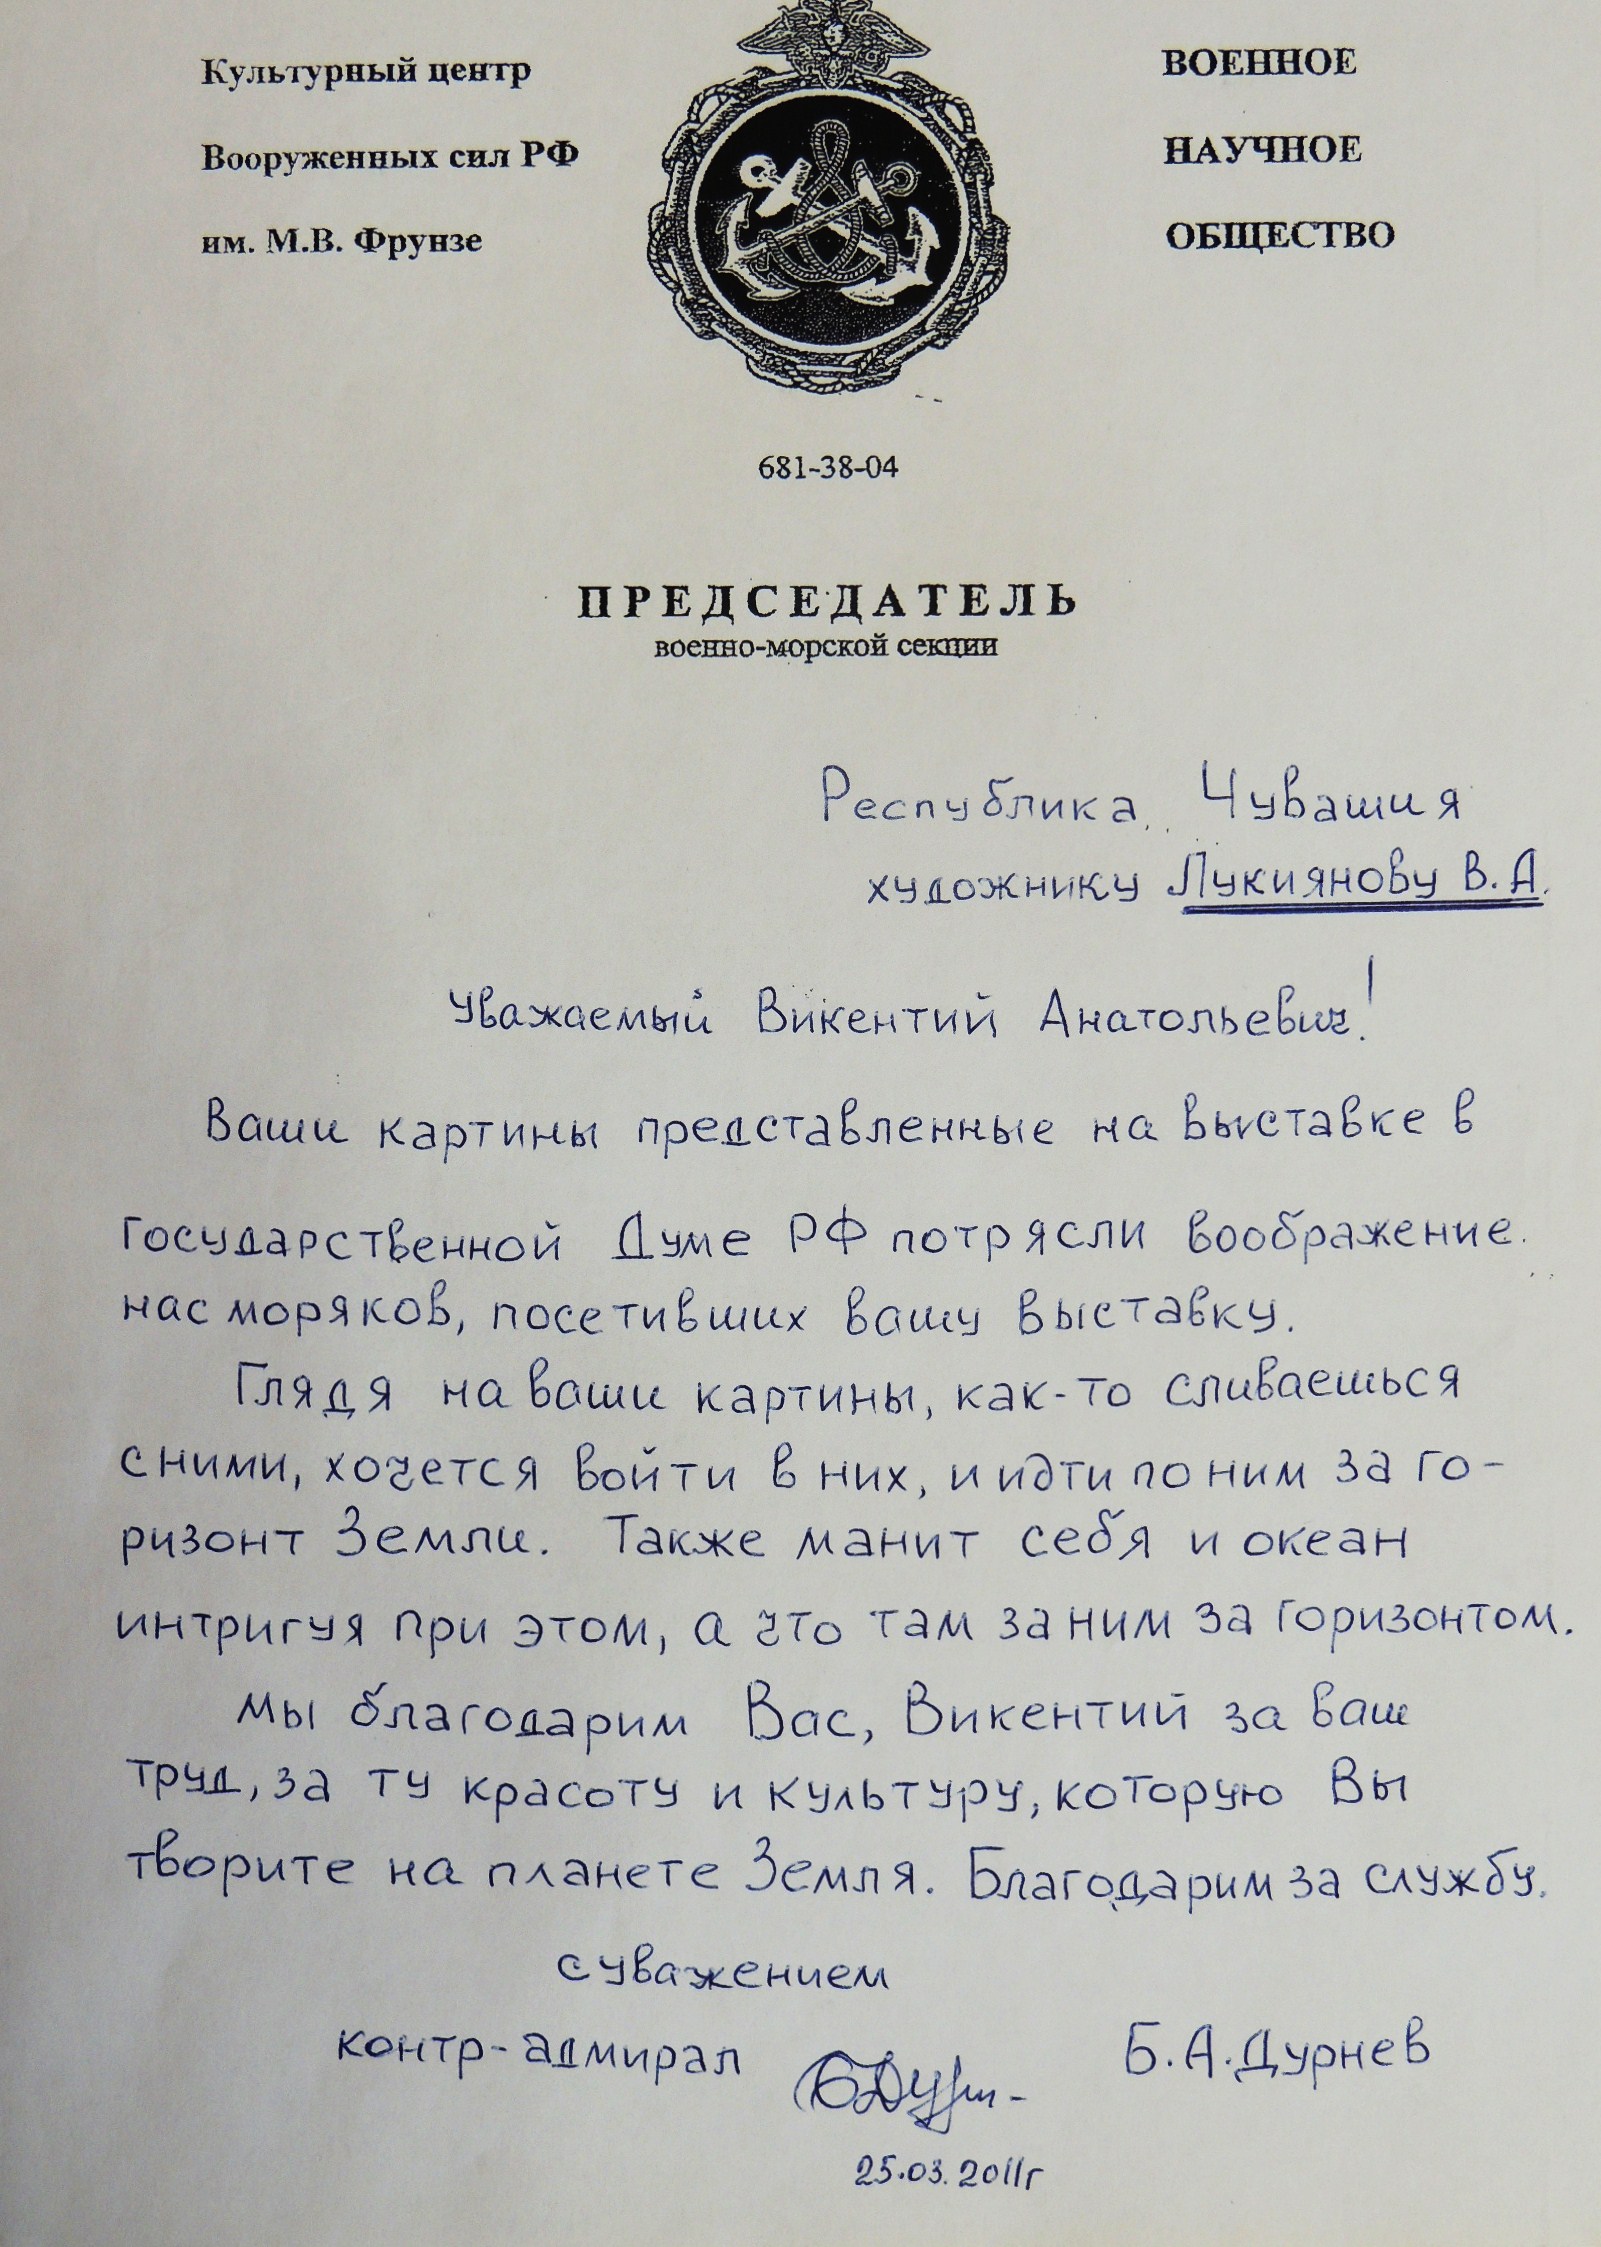 Культурный центр
Вооруженных сил РФ
им. М.В. Фрунзе
ВОЕННОЕ
НАУЧНОЕ
ОБЩЕСТВО
681-38-04
ПРЕДСЕДАТЕЛЬ
военно-морской секции
Республика Чувашия
художнику Лукиянову В.А.
Уважаемый Викентий Анатольевич!
Ваши картины представленные на выставке в
государственной Думе РФ потрясли воображение
нас моряков, посетивших вашу выставку.
Глядя на ваши картины, как-то сливаешься
с ними, хочется войти в них, и идти по ним за го-
ризонт Земли. Также манит себя и океан
интригуя при этом, а что там за ним за горизонтом.
Мы благодарим Вас, Викентий за ваш
труд, за ту красоту и культуру, которую Вы
творите на планете Земля. Благодарим за службу.
с уважением
контр-адмирал Б.А.Дурнев
25.03.2011г